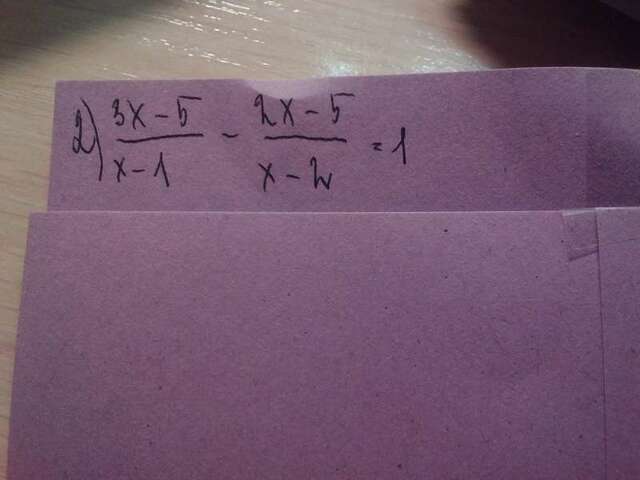 2) (3x-5)/(x-1) - (2x-5)/(x-2) = 1